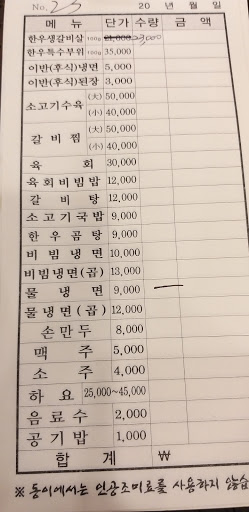 No. 23
20 년 월 일
메뉴 단가 수량 금액
한우생갈비살 100g 21,000 23,000
한우특수부위 100g 35,000
이반(후식)냉면 5,000
이반(후식)된장 3,000
소고기수육 (大) 50,000
(小) 40,000
갈비찜 (大) 50,000
(小) 40,000
육회 30,000
육회비빔밥 12,000
갈비탕 12,000
소고기국밥 9,000
한우곰탕 9,000
비빔냉면 10,000
비빔냉면(곱) 13,000
물냉면 9,000 —
물냉면(곱) 12,000
손만두 8,000
맥주 5,000
소주 4,000
하요 25,000~45,000
음료수 2,000
공기밥 1,000
합계 ₩
※ 동이에서는 인공조미료를 사용하지 않습